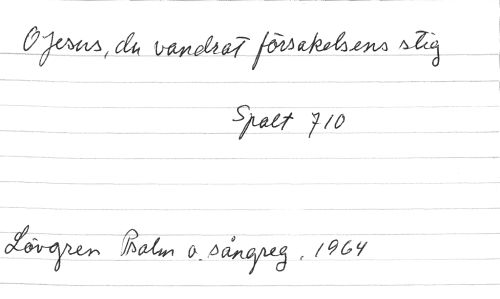 O Jesus, du vandrat försakelsens stig
Spalt 710
Lövgren Psalm o. sångreg. 1964